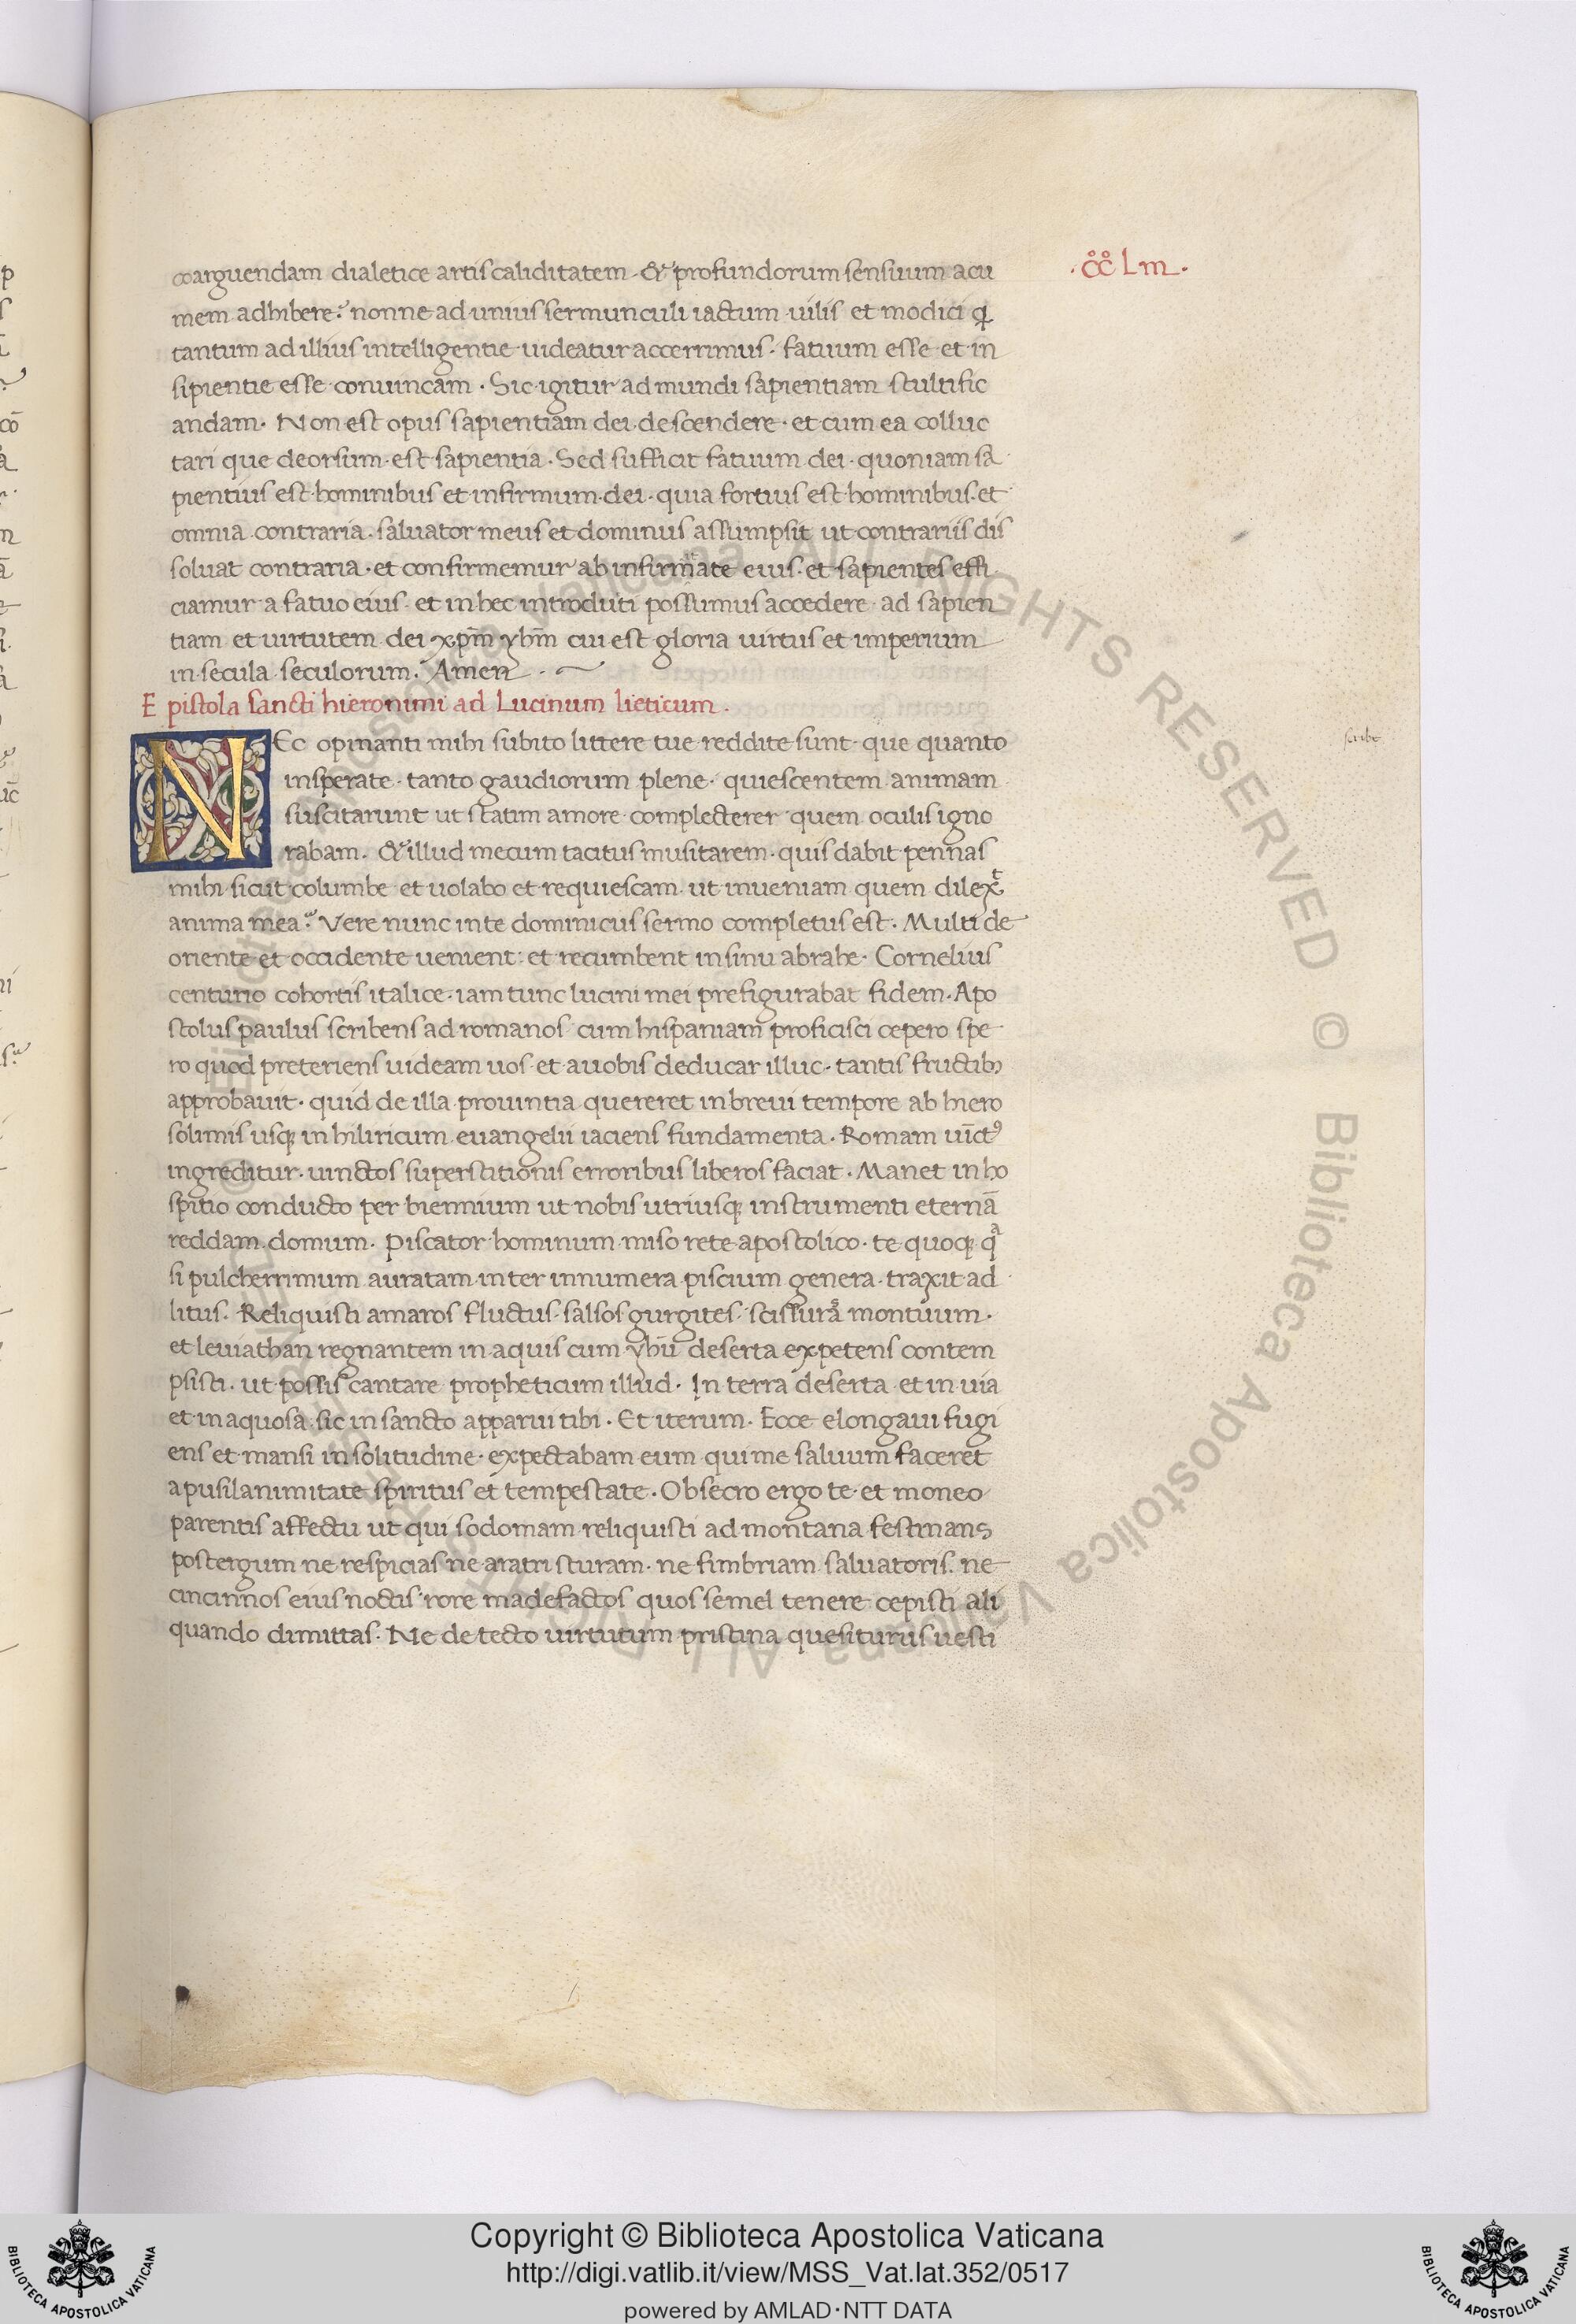 ·ccLm·
coarguendam dialetice artis caliditatem. & profundorum sensuum acu
mem adhibere? nonne ad unius sermunculi iactum uilis et modici
tantum ad illius intelligentie uideatur accerrimus. fatuum esse et in
sipientie esse conuincam. Sic igitur ad mundi sapientiam stultific
andam. Non est opus sapientiam dei descendere. et cum ea colluc
tari que deorsum est sapientia. Sed sufficit fatuum dei. quoniam sa
pientius est hominibus et infirmum dei. quia fortius est hominibus. et
omnia contraria saluator meus et dominus assumpsit ut contrariis dis
soluat contraria. et confirmemur ab infirmate eius. et sapientes effi
ciamur a fatuo eius. et in hec introduti possumus accedere ad sapien
tiam et uirtutem dei xp̄m yhm̄ cui est gloria uirtus et imperium
in secula seculorum. Amen
Epistola sancti hieronimi ad Lucinum lieticum.
NEc opinanti mihi subito littere tue reddite sunt. que quanto
insperate. tanto gaudiorum plene. quiescentem animam
suscitarunt ut statim amore complecterer quem oculis igno
rabam. & illud mecum tacitus musitarem. quis dabit pennas
mihi sicut columbe et uolabo et requiescam ut inueniam quem dilexͭ
anima mea? Vere nunc in te dominicus sermo completus est. Multi de
oriente et occidente uenient: et recumbent in sinu abrahe. Cornelius
centurio cohortis italice. iam tunc lucini mei prefigurabat fidem. Apo
stolus paulus scribens ad romanos cum hispaniam proficisci cepero spe
ro quod preteriens uideam uos et auobis deducar illuc. tantis fructibꝫ
approbauit. quid de illa prouintia quereret in breui tempore ab hiero
solimis usqꝫ in hiliricum euangelii iaciens fundamenta. Romam uīctꝰ
ingreditur. uinctos superstitionis erroribus liberos faciat. Manet in ho
spitio conducto per biennium ut nobis utriusqꝫ instrumenti eternā
reddam domum. Piscator hominum miso rete apostolico. te quoqꝫ qͣ
si pulcherrimum auratam inter innumera piscium genera traxit ad
litus. Reliquisti amaros fluctus. salsos gurgites. scissurā montuum.
et leuiathan regnantem in aquis cum yhū deserta expetens contem
psisti. ut possis cantare propheticum illud. In terra deserta et in uia
et inaquosa sic in sancto apparui tibi. Et iterum. Ecce elongaui fugi
ens et mansi in solitudine. expectabam eum qui me saluum faceret
apusilanimitate spiritus et tempestate. Obsecro ergo te et moneo
parentis affectu ut qui sodomam reliquisti ad montana festinans
postergum ne respicias ne aratri sturam. ne fimbriam saluatoris. ne
cincinnos eius noctis rore madefactos quos semel tenere cepisti ali
quando dimittas. Ne de tecto uirtutum pristina quesiturus uesti
scribe
© Biblioteca Apostolica Vaticana ALL RIGHTS RESERVED © Biblioteca Apostolica Vaticana ALL RIGHTS RESERVED
BIBLIOTECA APOSTOLICA VATICANA
Copyright © Biblioteca Apostolica Vaticana
http://digi.vatlib.it/view/MSS_Vat.lat.352/0517
powered by AMLAD·NTT DATA
BIBLIOTECA APOSTOLICA VATICANA